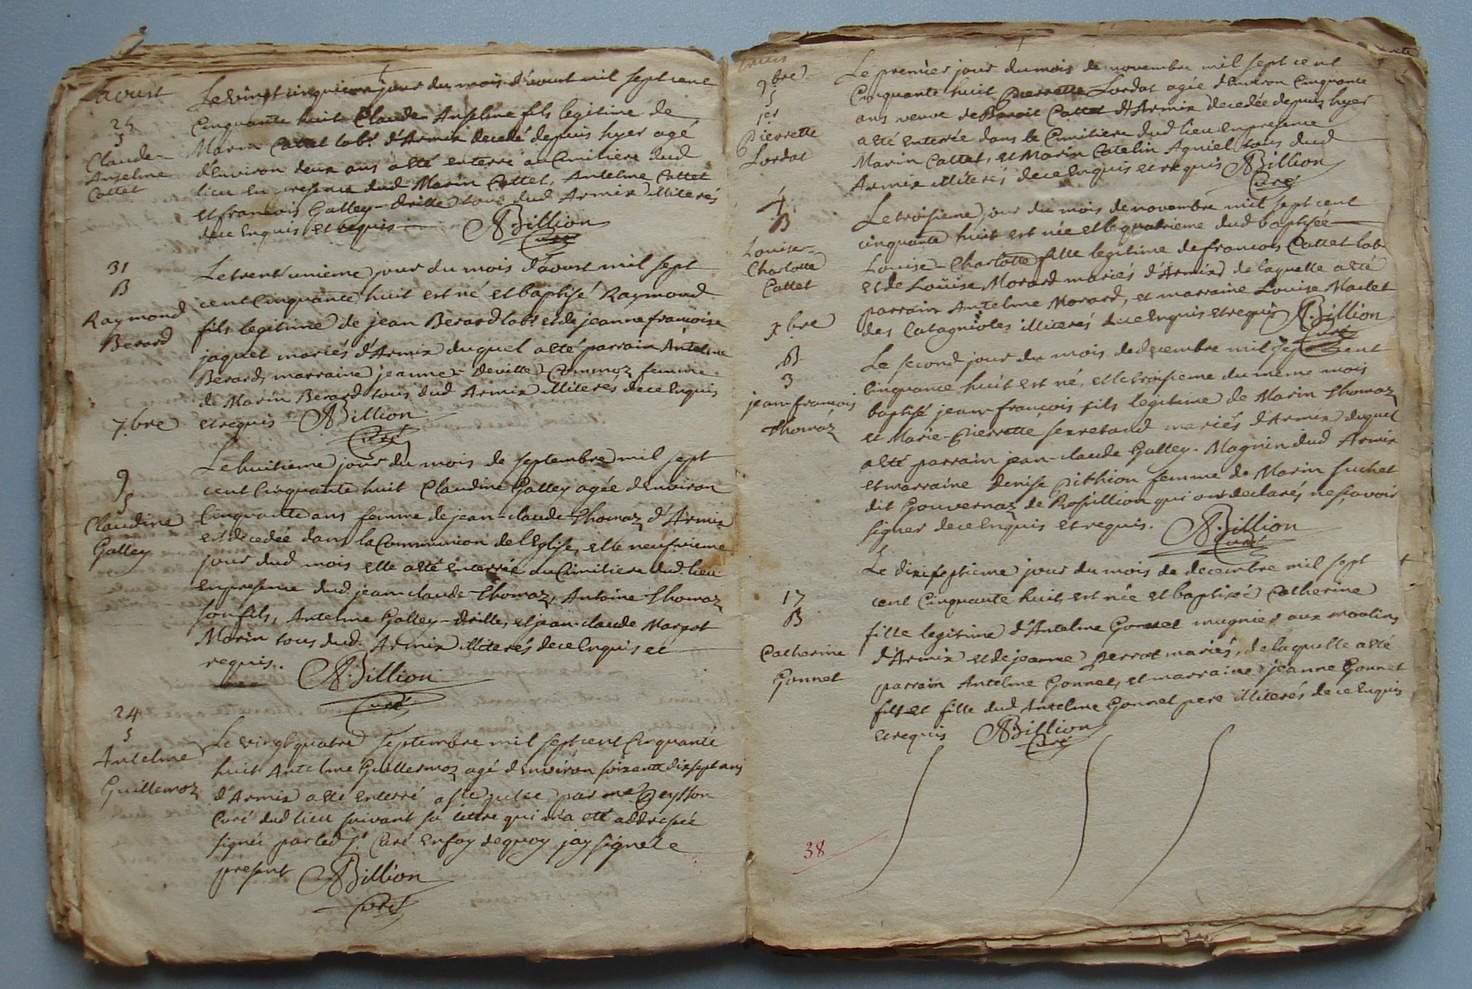 Laoust
Le vingt cinquieme jour du mois d'aoust mil sept cent
25
Cinquante huit Claude Anselme fils legitime de
S
Marin Cattet labr. d'Armix decedé depuis hyer agé
Claude
d'Environ deux ans a été enterré au Cimitiere dud
Anselme
lieu en presence dud Marin Cattet, Antelme Cattet
Cattet
et francois Galley-drille tous dud Armix illiterés
de ce Enquis et requis
ABillion
Curé
31
Le trent'unieme jour du mois d'aoust mil sept
B
cent Cinquante huit est né et baptisé Raymond
Raymond
fils legitime de jean Berard labr et de jeanne françoise
Berard
jaquet mariés d'Armix duquel a eté parrain Antelme
Berard, marraine jeanne deville Commoz femme
de Marin Berard tous dud Armix illiterés de ce Enquis
7.bre
et requis ABillion
Curé
Le huitieme jour du mois de septembre mil sept
9
cent Cinquante huit Claudine Galley agée d'environ
S
Cinquante ans femme de jean-claude Thomaz d'Armix
Claudine
est decedée dans la Communion de l'Eglise, et le neufvieme
Galley
jour dud mois elle a eté enterrée au Cimitiere dud lieu
en presence dud jean-claude Thomaz, Antoine Thomaz
son fils, Antelme Galley-drille, et jean claude Marpot
Marin tous dud Armix illiterés de ce Enquis et
requis.
ABillion
Curé
24
S
Le vingt quatre septembre mil sept cent Cinquante
Antelme
huit Antelme Guillermoz agé d'environ soixante dix sept ans
Guillemoz
d'Armix a eté enterré a par me Peysson
Curé dud lieu suivant sa lettre qui m'a eté addressée
signée par led Sr. Curé en foy de quoy j'ay signé le
present ABillion
Curé
9bre
Le premier jour du mois de novembre mil sept cent
S
Cinquante huit Pierrette Lordat agée d'Environ Cinquante
1er
ans veuve de Benoit Cattet d'Armix decedée depuis hyer
Pierrette
a eté enterrée dans le Cimitiere dud lieu en presence
Lordat
Marin Cattet, et Marin Catelin Agniel tous dud
Armix illiterés de ce Enquis et requis ABillion
Curé
4
Le troisieme jour du mois de novembre mil sept cent
B
cinquante huit est née et le quatrieme dud baptisée
Louise
Louise-Charlotte fille legitime de francois Cattet labr
Charlotte
et de Loüise Morard mariés d'Armix de laquelle a eté
Cattet
parrain Antelme Morard, et marraine Louise Martet
des Catagnoles illiterés de ce Enquis et requis ABillion
Curé
Xbre
Le second jour du mois de decembre mil sept cent
B
Cinquante huit est né, et le troisieme du meme mois
3
baptisé jean-francois fils legitime de Marin Thomaz
jean-francois
et Marie-Pierrette serretand mariés d'Armix duquel
Thomaz
a eté parrain jean-claude Galley-Magnin dud Armix
et marraine denise Pithion femme de Marin fuchet
dit Gouvernaz de Rossillion qui ont declarés ne sçavoir
signer de ce Enquis et requis. ABillion
Curé
Le dixseptieme jour du mois de decembre mil sept
17
cent Cinquante huit est née et baptisée Catherine
B
fille legitime d'Antelme Gonnet mugnier aux moulins
Catherine
d'Armix et de jeanne Perrot mariés, de laquelle a eté
Gonnet
parrain Antelme Gonnet, et marraine jeanne Gonnet
fils et fille dud Antelme Gonnet pere illiterés de ce Enquis
et requis ABillion
Curé
38